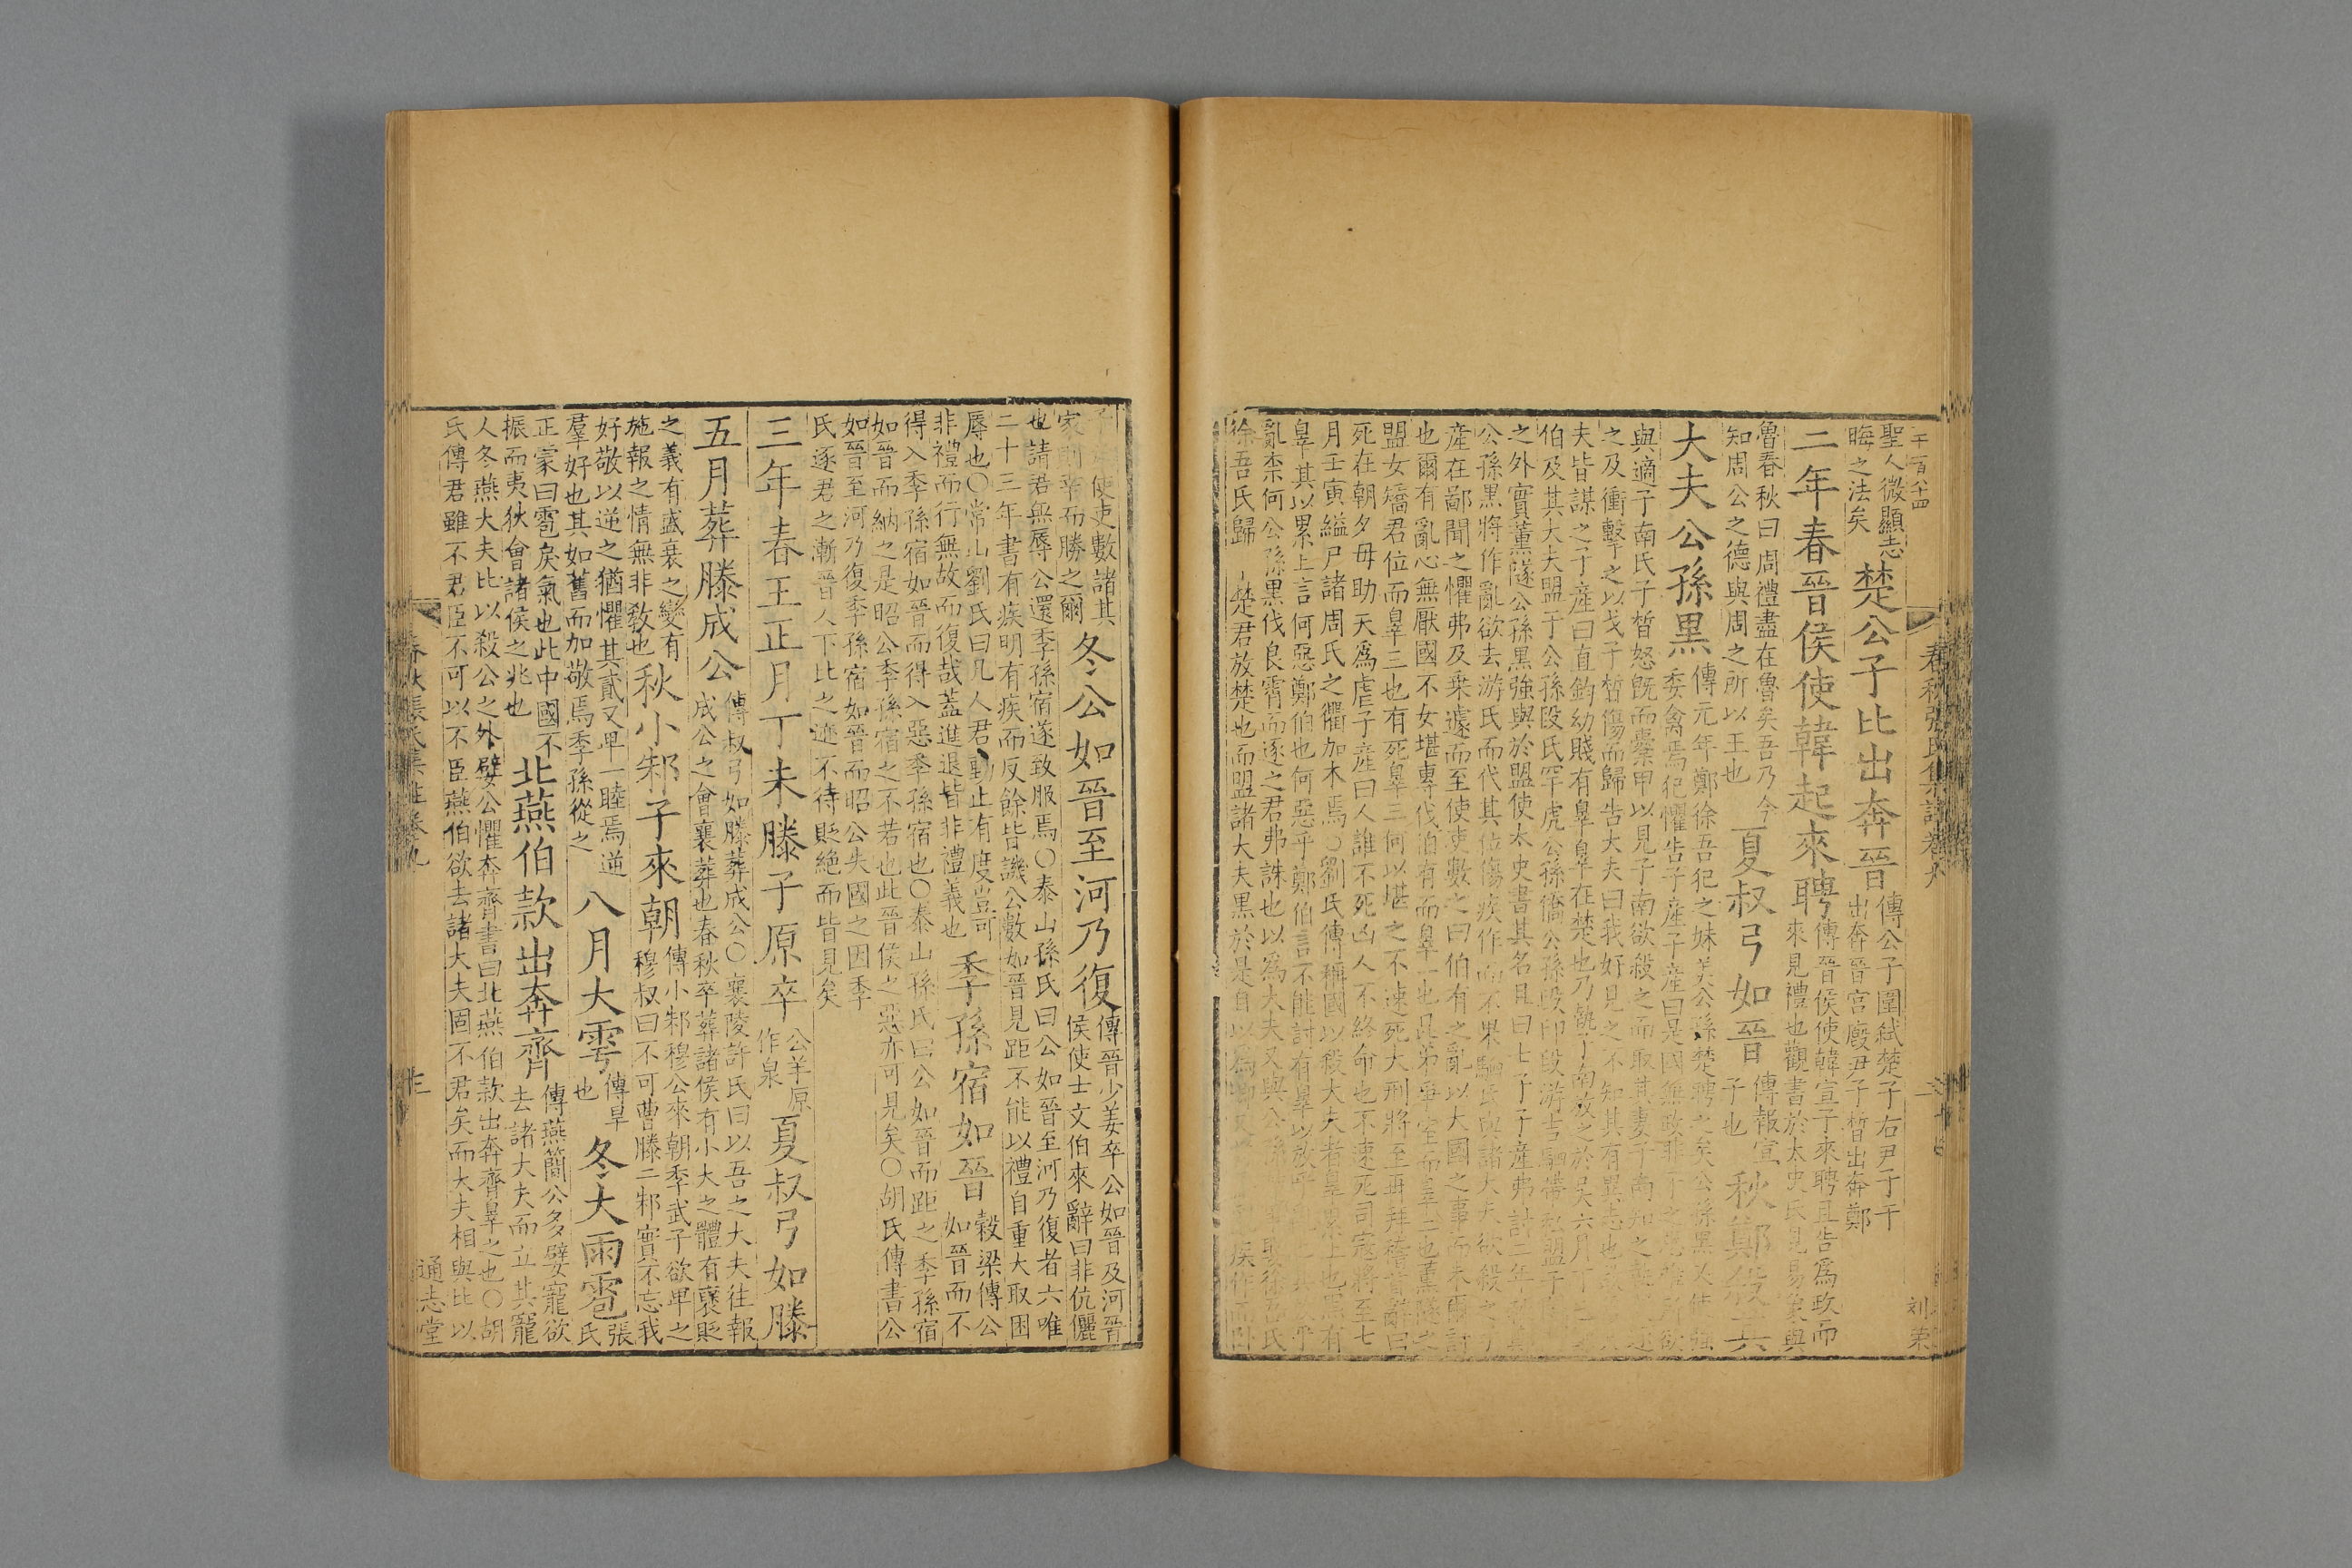 千一百八十四
春秋張氏集註卷九
刘荣
聖人微顯志
晦之法矣
楚公子比出奔晉
傳公子圍弑楚子右尹子干
出奔晉宫廄尹子晳出奔鄭
二年春晉侯使韓起來聘
傳晉侯使韓宣子來聘且告爲政而
來見禮也觀書於太史氏見易象與
魯春秋曰周禮盡在魯矣吾乃今
知周公之德與周之所以王也
夏叔弓如晉
傳報宣
子也
秋鄭殺其
大夫公孫黑
傳元年鄭徐吾犯之妹美公孫楚聘之矣公孫黑又使強
委禽焉犯懼告子産子産曰是國無政非子之患唯所欲
與適子南氏子晳怒旣而櫜甲以見子南欲殺之而取其妻子南知之執
之及衝擊之以戈子晳傷而歸告大夫曰我好見之不知其有異志也
夫皆謀之子産曰直鈞幼賤有辠辠在楚也乃執子南放之於吳六月丁
伯及其大夫盟于公孫段氏罕虎公孫僑公孫段印段游吉駟帶私盟于
之外實薫隧公孫黑強與於盟使太史書其名且曰七子子産弗討二年
公孫黑將作亂欲去游氏而代其位傷疾作而不果駟氏與諸大夫欲殺之子
産在鄙聞之懼弗及乗遽而至使吏數之曰伯有之亂以大國之事而未爾討
也爾有亂心無厭國不女堪專伐伯有而辠一也昆弟爭室而辠二也薫隧之
盟女矯君位而辠三也有死辠三何以堪之不速死大刑將至再拜稽首辭曰
死在朝夕毋助天爲虐子産曰人誰不死凶人不終命也不速死司寇將至七
月壬寅縊尸諸周氏之衢加木焉○劉氏傳稱國以殺大夫者辠累上也黑有
辠其以累上言何惡鄭伯也何惡乎鄭伯言不能討有辠以放乎
亂柰何公孫黑伐良霄而逐之君弗誅也以爲大夫又與公孫楚爭娶徐吾氏
徐吾氏歸
楚君放楚也而盟諸大夫黑於是自以爲卿又
疾作而卧
使吏數諸其
家則辛而勝之爾
冬公如晉至河乃復
傳晉少姜卒公如晉及河晉
侯使士文伯來辭曰非伉儷
也請君無辱公還季孫宿遂致服焉○泰山孫氏曰公如晉至河乃復者六唯
二十三年書有疾明有疾而反餘皆譏公數如晉見距不能以禮自重大取困
辱也○常山劉氏曰凡人君動止有度豈可
非禮而行無故而復哉蓋進退皆非禮義也
季孫宿如晉
榖梁傳公
如晉而不
得入季孫宿如晉而得入惡季孫宿也○泰山孫氏曰公如晉而距之季孫宿
如晉而納之是昭公季孫宿之不若也此晉侯之惡亦可見矣○胡氏傳書公
如晉至河乃復季孫宿如晉而昭公失國之因季
氏逐君之漸晉人下比之迹不待貶絶而皆見矣
三年春王正月丁未滕子原卒
公羊原
作泉
夏叔弓如滕
五月葬滕成公
傳叔弓如滕葬成公○襄陵許氏曰以吾之大夫往報
成公之會襄葬也春秋卒葬諸侯有小大之體有襃貶
之義有盛衰之變有
施報之情無非敎也
秋小邾子來朝
傳小邾穆公來朝季武子欲卑之
穆叔曰不可曹滕二邾實不忘我
好敬以逆之猶懼其貳又卑一睦焉逆
羣好也其如舊而加敬焉季孫從之
八月大雩
傳旱
也
冬大雨雹
張
氏
正蒙曰雹戾氣也此中國不
振而夷狄會諸侯之兆也
北燕伯款出奔齊
傳燕簡公多嬖寵欲
去諸大夫而立其寵
人冬燕大夫比以殺公之外嬖公懼奔齊書曰北燕伯款出奔齊辠之也○胡
氏傳君雖不君臣不可以不臣燕伯欲去諸大夫固不君矣而大夫相與比以
春秋張氏集註卷九
通志堂